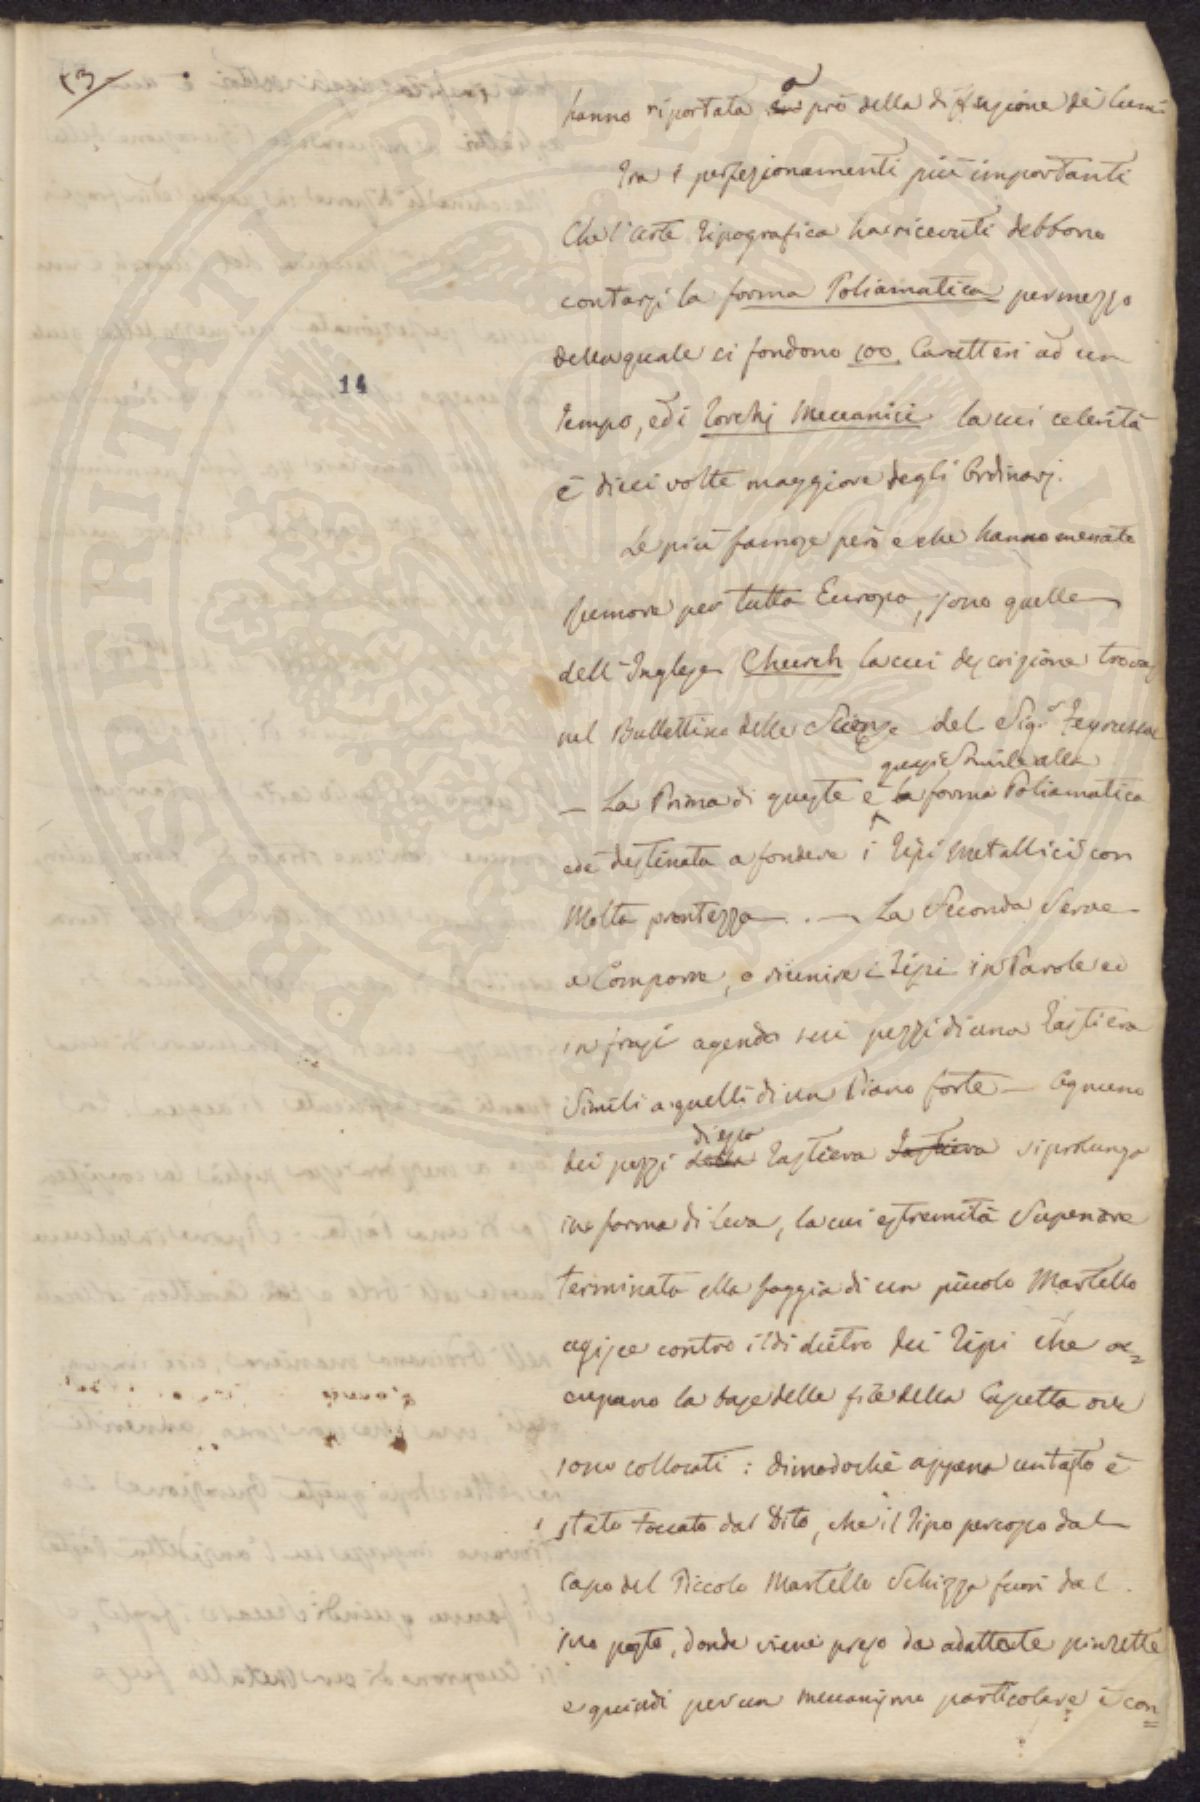 (3
14
hanno riportata a prò della diffusione de' lumi
Tra i perfezionamenti più importanti
che l'arte Tipografica ha ricevuti debbono
contarsi la forma Poliamatica per mezzo
della quale si fondono 100 Caratteri ad un
tempo, ed i Torchj Meccanici la cui celerità
è dieci volte maggiore degli Ordinarj.
Le più famose però e che hanno menato
Rumore per tutta Europa, sono quelle
dell'Inglese Church la cui descrizione trovasi
nel Bullettino delle Scienze del Sigr
quasi Simile alla
— La Prima di queste è la forma Poliamatica
ed è destinata a fondere i Tipi Metallici con
Molta prontezza. — La Seconda Serve
a Comporre, o riunire i Tipi in Parole ed
in frasi agendo sui pezzi di una Tastiera
Simili a quelli di un Piano forte — Ognuno
di essa
dei pezzi della Tastiera Tastiera si prolunga
in forma di Leva, la cui estremità Superiore
terminata alla foggia di un piccolo Martello
agisce contro il di dietro dei Tipi che oc=
cupano la base delle file della Casetta ove
sono collocati: dimodochè appena un tasto è
stato toccato dal Dito, che il Tipo percosso dal
Capo del Piccolo Martello Schizza fuori dal
suo posto, donde viene preso da adattate pinzette
e quindi per un meccanismo particolare è con=